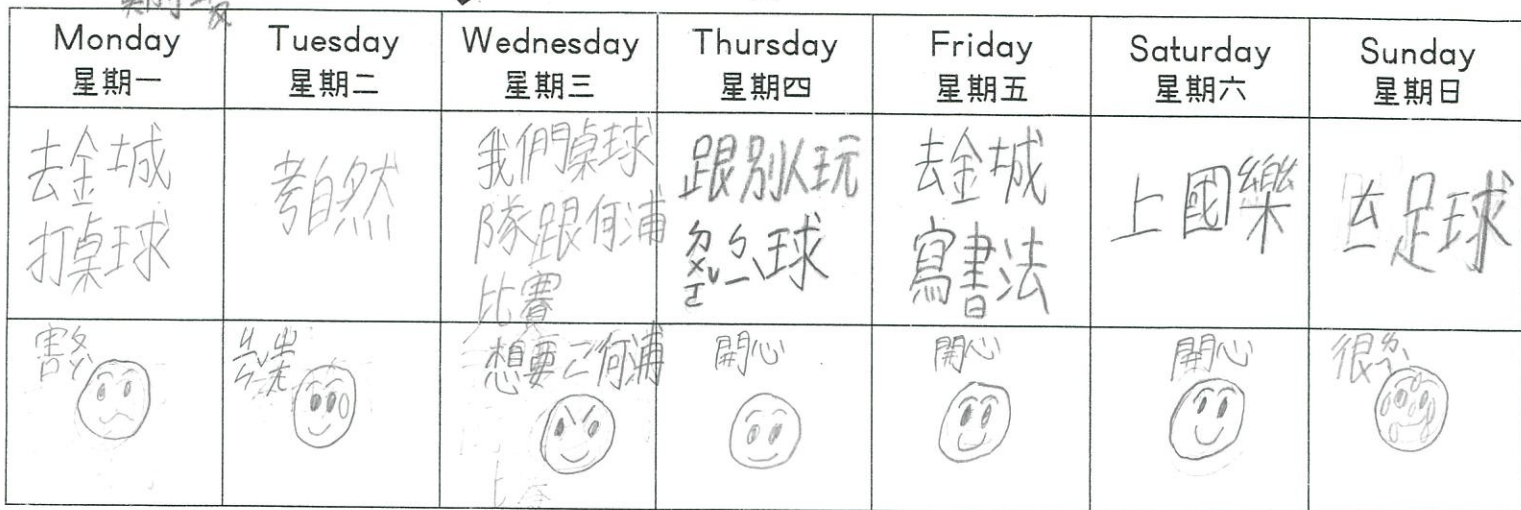 Monday
星期一
Tuesday
星期二
Wednesday
星期三
Thursday
星期四
Friday
星期五
Saturday
星期六
Sunday
星期日
去金城
打桌球
考自然
我們桌球
隊跟何浦
比賽
跟別人玩
ㄉㄨㄛˇㄅㄧˋ球
去金城
寫書法
上國樂
去足球
害ㄆㄚˋ
想要ㄍ何浦
開心
開心
開心
很ㄌㄟˋ